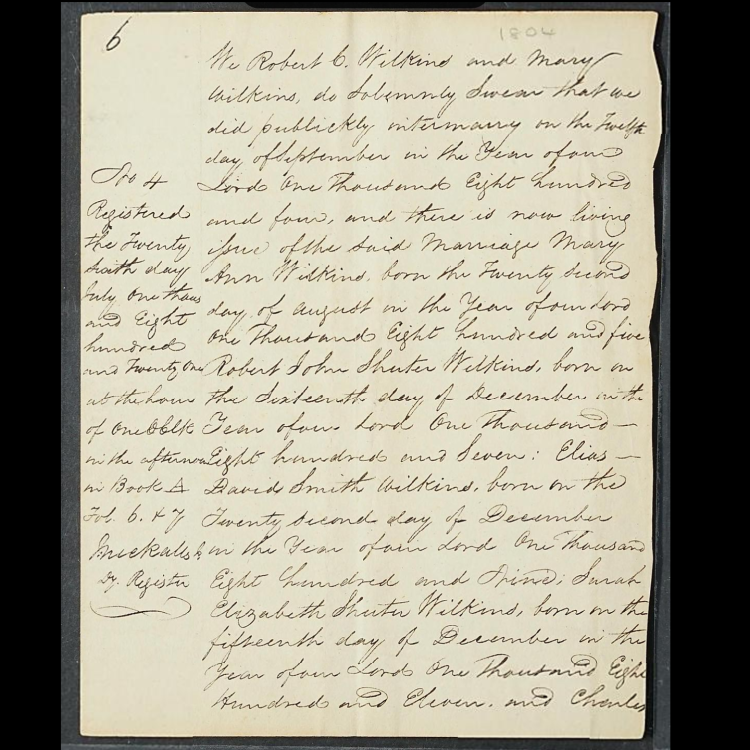 6
1804
We Robert C. Wilkins and Mary
Wilkins, do Solemnly Swear that we
did publickly intermarry on the Twelfth
day of September in the Year of our
Lord One Thousand Eight hundred
and four, and there is now living
issue of the said Marriage Mary
Ann Wilkins, born the Twenty Second
day of August in the Year of our Lord
One Thousand Eight hundred and five
Robert John Shuter Wilkins, born on
the Sixteenth day of December in the
Year of our Lord One Thousand —
Eight hundred and Seven; Elias —
David Smith Wilkins, born on the
Twenty Second day of December
in the Year of our Lord One Thousand
Eight hundred and Nine; Sarah
Elizabeth Shuter Wilkins, born on the
fifteenth day of December in the
Year of our Lord One Thousand Eight
Hundred and Eleven, and Charles
No 4
Registered
the Twenty
Sixth day
July One thous
and Eight
hundred
and Twenty One
at the hour
of One OClk
in the afternoon
in Book A
Fol. 6. & 7
Dy. Register